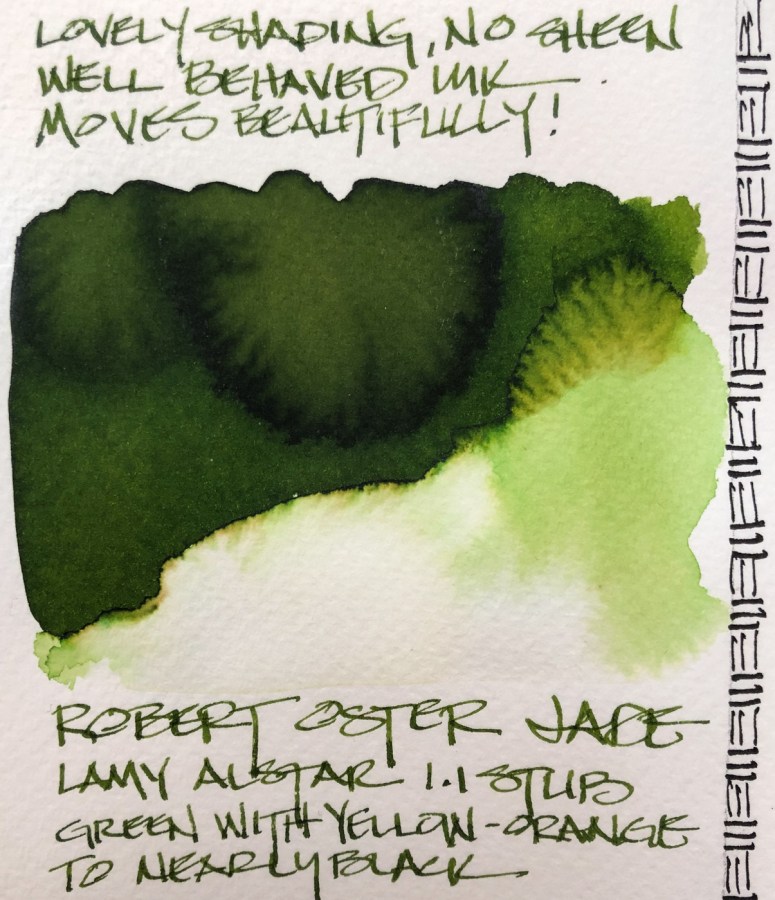 LOVELY SHADING, NO SHEEN
WELL BEHAVED INK
MOVES BEAUTIFULLY!
ROBERT OSTER JADE
LAMY ALSTAR 1.1 STUB
GREEN WITH YELLOW-ORANGE
TO NEARLY BLACK